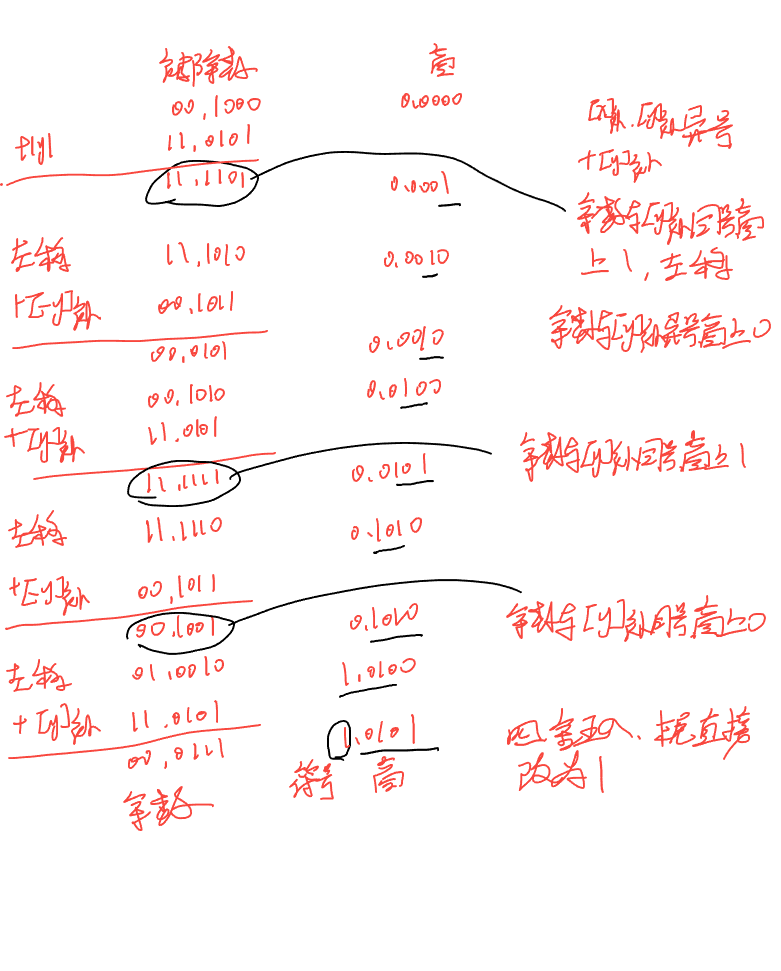 被除数 商
00.1000 0.0000
+[y] 11.0101
11.1101 0.0001
[x]补.[y]补异号
+[y]补
余数与[y]补同号商
上1,左移
左移 11.1010 0.0010
+[-y]补 00.1011
00.0101 0.0010 余数与[y]补异号商上0
左移 00.1010 0.0100
+[y]补 11.0101
11.1111 0.0101 余数与[y]补同号商上1
左移 11.1110 0.1010
+[-y]补 00.1011
00.1001 0.1010 余数与[y]补异号商上0
左移 01.0010 1.0100
+[y]补 11.0101
00.0111 1.0101 四舍五入.末尾直接
改为1
余数 符号 商